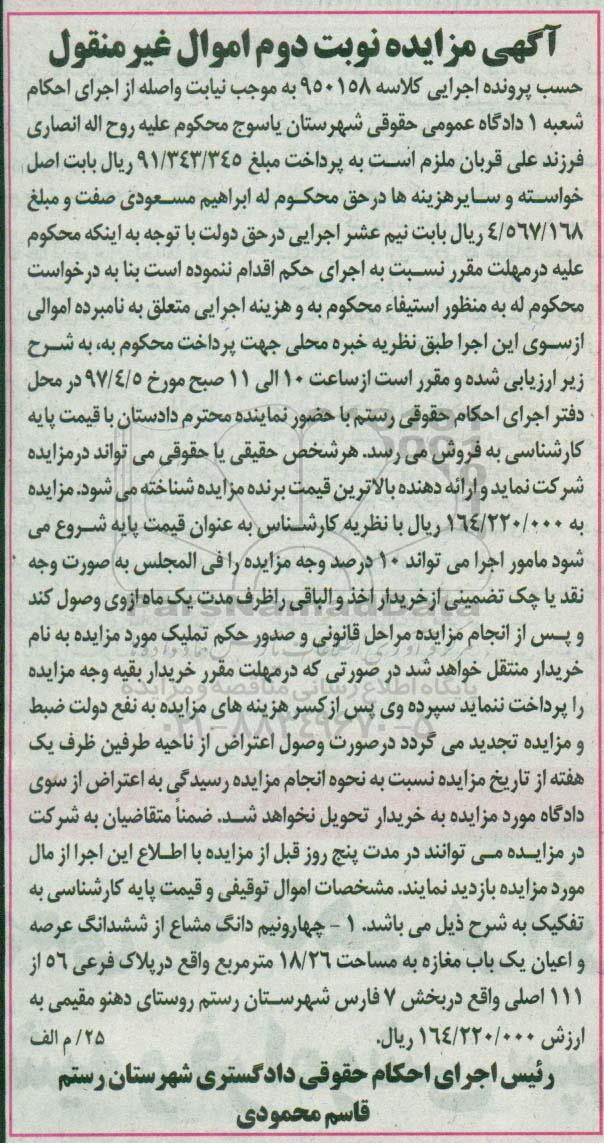 آگهی مزایده نوبت دوم اموال غیر منقول
حسب پرونده اجرایی کلاسه ۹۵۰۱۵۸ به موجب نیابت واصله از اجرای احکام
شعبه ۱ دادگاه عمومی حقوقی شهرستان یاسوج محکوم علیه روح اله انصاری
فرزند علی قربان ملزم است به پرداخت مبلغ ۹۱/۳۴۳/۳۴۵ ریال بابت اصل
خواسته و سایر هزینه ها در حق محکوم له ابراهیم مسعودی صفت و مبلغ
۴/۵۶۷/۱۶۸ ریال بابت نیم عشر اجرایی در حق دولت با توجه به اینکه محکوم
علیه در مهلت مقرر نسبت به اجرای حکم اقدام ننموده است بنا به درخواست
محکوم له به منظور استیفاء محکوم به و هزینه اجرایی متعلق به نامبرده اموالی
از سوی این اجرا طبق نظریه خبره محلی جهت پرداخت محکوم به، به شرح
زیر ارزیابی شده و مقرر است از ساعت ۱۰ الی ۱۱ صبح مورخ ۹۷/۴/۵ در محل
دفتر اجرای احکام حقوقی رستم با حضور نماینده محترم دادستان با قیمت پایه
کارشناسی به فروش می رسد. هر شخص حقیقی یا حقوقی می تواند در مزایده
شرکت نماید و ارائه دهنده بالاترین قیمت برنده مزایده شناخته می شود. مزایده
به ۱۶۴/۲۲۰/۰۰۰ ریال با نظریه کارشناس به عنوان قیمت پایه شروع می
شود مامور اجرا می تواند ۱۰ درصد وجه مزایده را فی المجلس به صورت وجه
نقد یا چک تضمینی از خریدار اخذ و الباقی را ظرف مدت یک ماه از وی وصول کند
و پس از انجام مزایده مراحل قانونی و صدور حکم تملیک مورد مزایده به نام
خریدار منتقل خواهد شد در صورتی که در مهلت مقرر خریدار بقیه وجه مزایده
را پرداخت ننماید سپرده وی پس از کسر هزینه های مزایده به نفع دولت ضبط
و مزایده تجدید می گردد در صورت وصول اعتراض از ناحیه طرفین ظرف یک
هفته از تاریخ مزایده نسبت به نحوه انجام مزایده رسیدگی به اعتراض از سوی
دادگاه مورد مزایده به خریدار تحویل نخواهد شد. ضمناً متقاضیان به شرکت
در مزایده می توانند در مدت پنج روز قبل از مزایده با اطلاع این اجرا از مال
مورد مزایده بازدید نمایند. مشخصات اموال توقیفی و قیمت پایه کارشناسی به
تفکیک به شرح ذیل می باشد. ۱ - چهارونیم دانگ مشاع از ششدانگ عرصه
و اعیان یک باب مغازه به مساحت ۱۸/۲۶ مترمربع واقع در پلاک فرعی ۵۶ از
۱۱۱ اصلی واقع در بخش ۷ فارس شهرستان رستم روستای دهنو مقیمی به
ارزش ۱۶۴/۲۲۰/۰۰۰ ریال. ۲۵/ م الف
رئیس اجرای احکام حقوقی دادگستری شهرستان رستم
قاسم محمودی